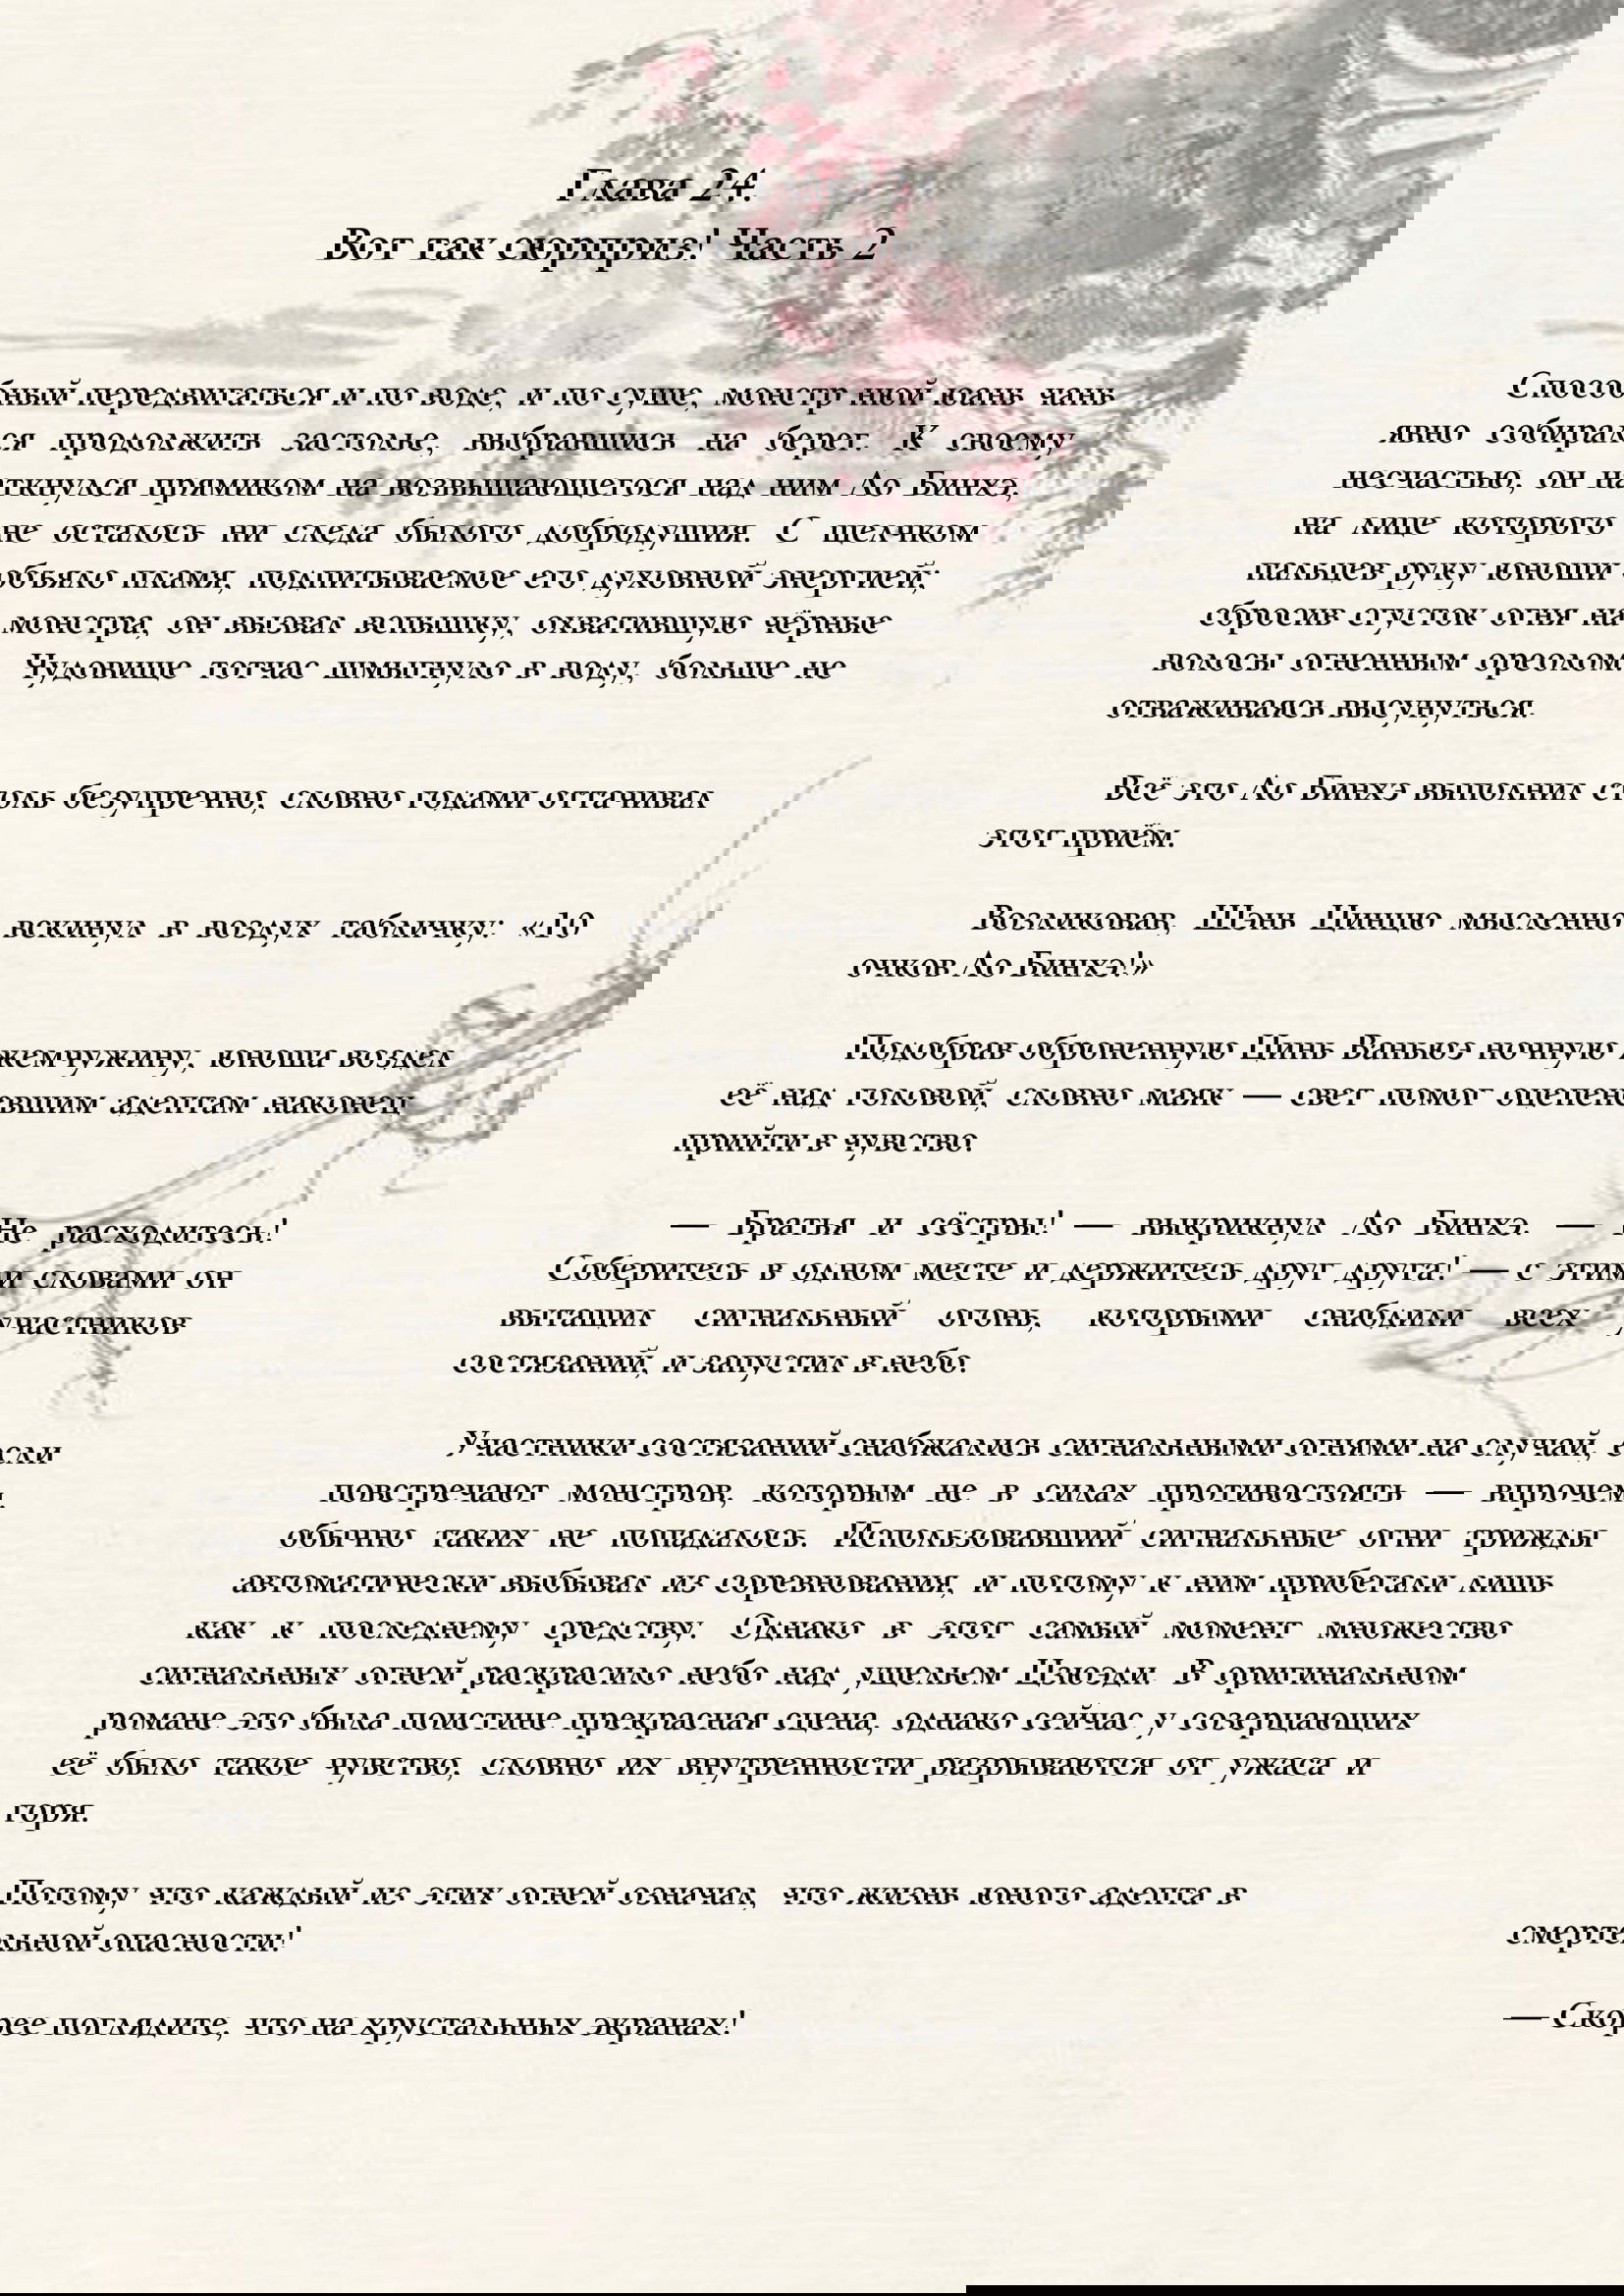 Глава 24.
Вот так сюрприз! Часть 2
Способный передвигаться и по воде, и по суше, монстр нюй юань чань
явно собирался продолжить застолье, выбравшись на берег. К своему
несчастью, он наткнулся прямиком на возвышающегося над ним Ло Бинхэ,
на лице которого не осталось ни следа былого добродушия. С щелчком
пальцев руку юноши объяло пламя, подпитываемое его духовной энергией;
сбросив сгусток огня на монстра, он вызвал вспышку, охватившую чёрные
волосы огненным ореолом. Чудовище тотчас шмыгнуло в воду, больше не
отваживаясь высунуться.
Всё это Ло Бинхэ выполнил столь безупречно, словно годами оттачивал
этот приём.
Возликовав, Шэнь Цинцю мысленно вскинул в воздух табличку: «10
очков Ло Бинхэ!»
Подобрав оброненную Цинь Ваньюэ ночную жемчужину, юноша воздел
её над головой, словно маяк — свет помог оцепеневшим адептам наконец
прийти в чувство.
— Братья и сёстры! — выкрикнул Ло Бинхэ. — Не расходитесь!
Соберитесь в одном месте и держитесь друг друга! — с этими словами он
вытащил сигнальный огонь, которыми снабдили всех участников
состязаний, и запустил в небо.
Участники состязаний снабжались сигнальными огнями на случай, если
повстречают монстров, которым не в силах противостоять — впрочем,
обычно таких не попадалось. Использовавший сигнальные огни трижды
автоматически выбывал из соревнования, и потому к ним прибегали лишь
как к последнему средству. Однако в этот самый момент множество
сигнальных огней раскрасило небо над ущельем Цзюэди. В оригинальном
романе это была поистине прекрасная сцена, однако сейчас у созерцающих
её было такое чувство, словно их внутренности разрываются от ужаса и
горя.
Потому что каждый из этих огней означал, что жизнь юного адепта в
смертельной опасности!
— Скорее поглядите, что на хрустальных экранах!